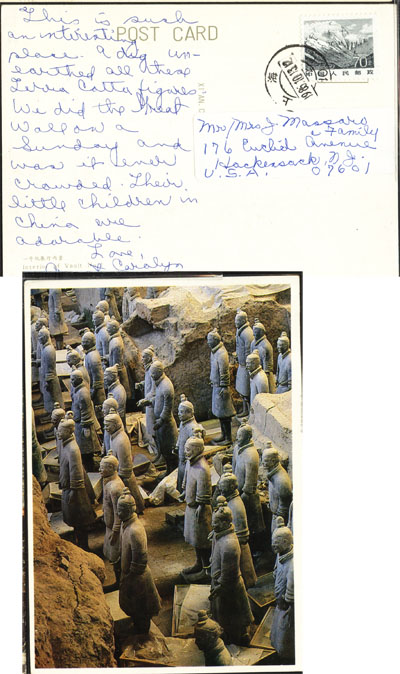 This is such
an interesting
place. A dig un-
earthed all these
Terra Cotta figures
We did the Great
Wall on a
Sunday and
was it ever
crowded. Their
little children in
China are
adorable.
Love,
& Carolyn
POST CARD
70分
中国人民邮政
上海
Mr/Mrs J. Massaro
& Family
176 Euclid Avenue
Hackensack, N.J.
U.S.A. 07601
Interior of Vault